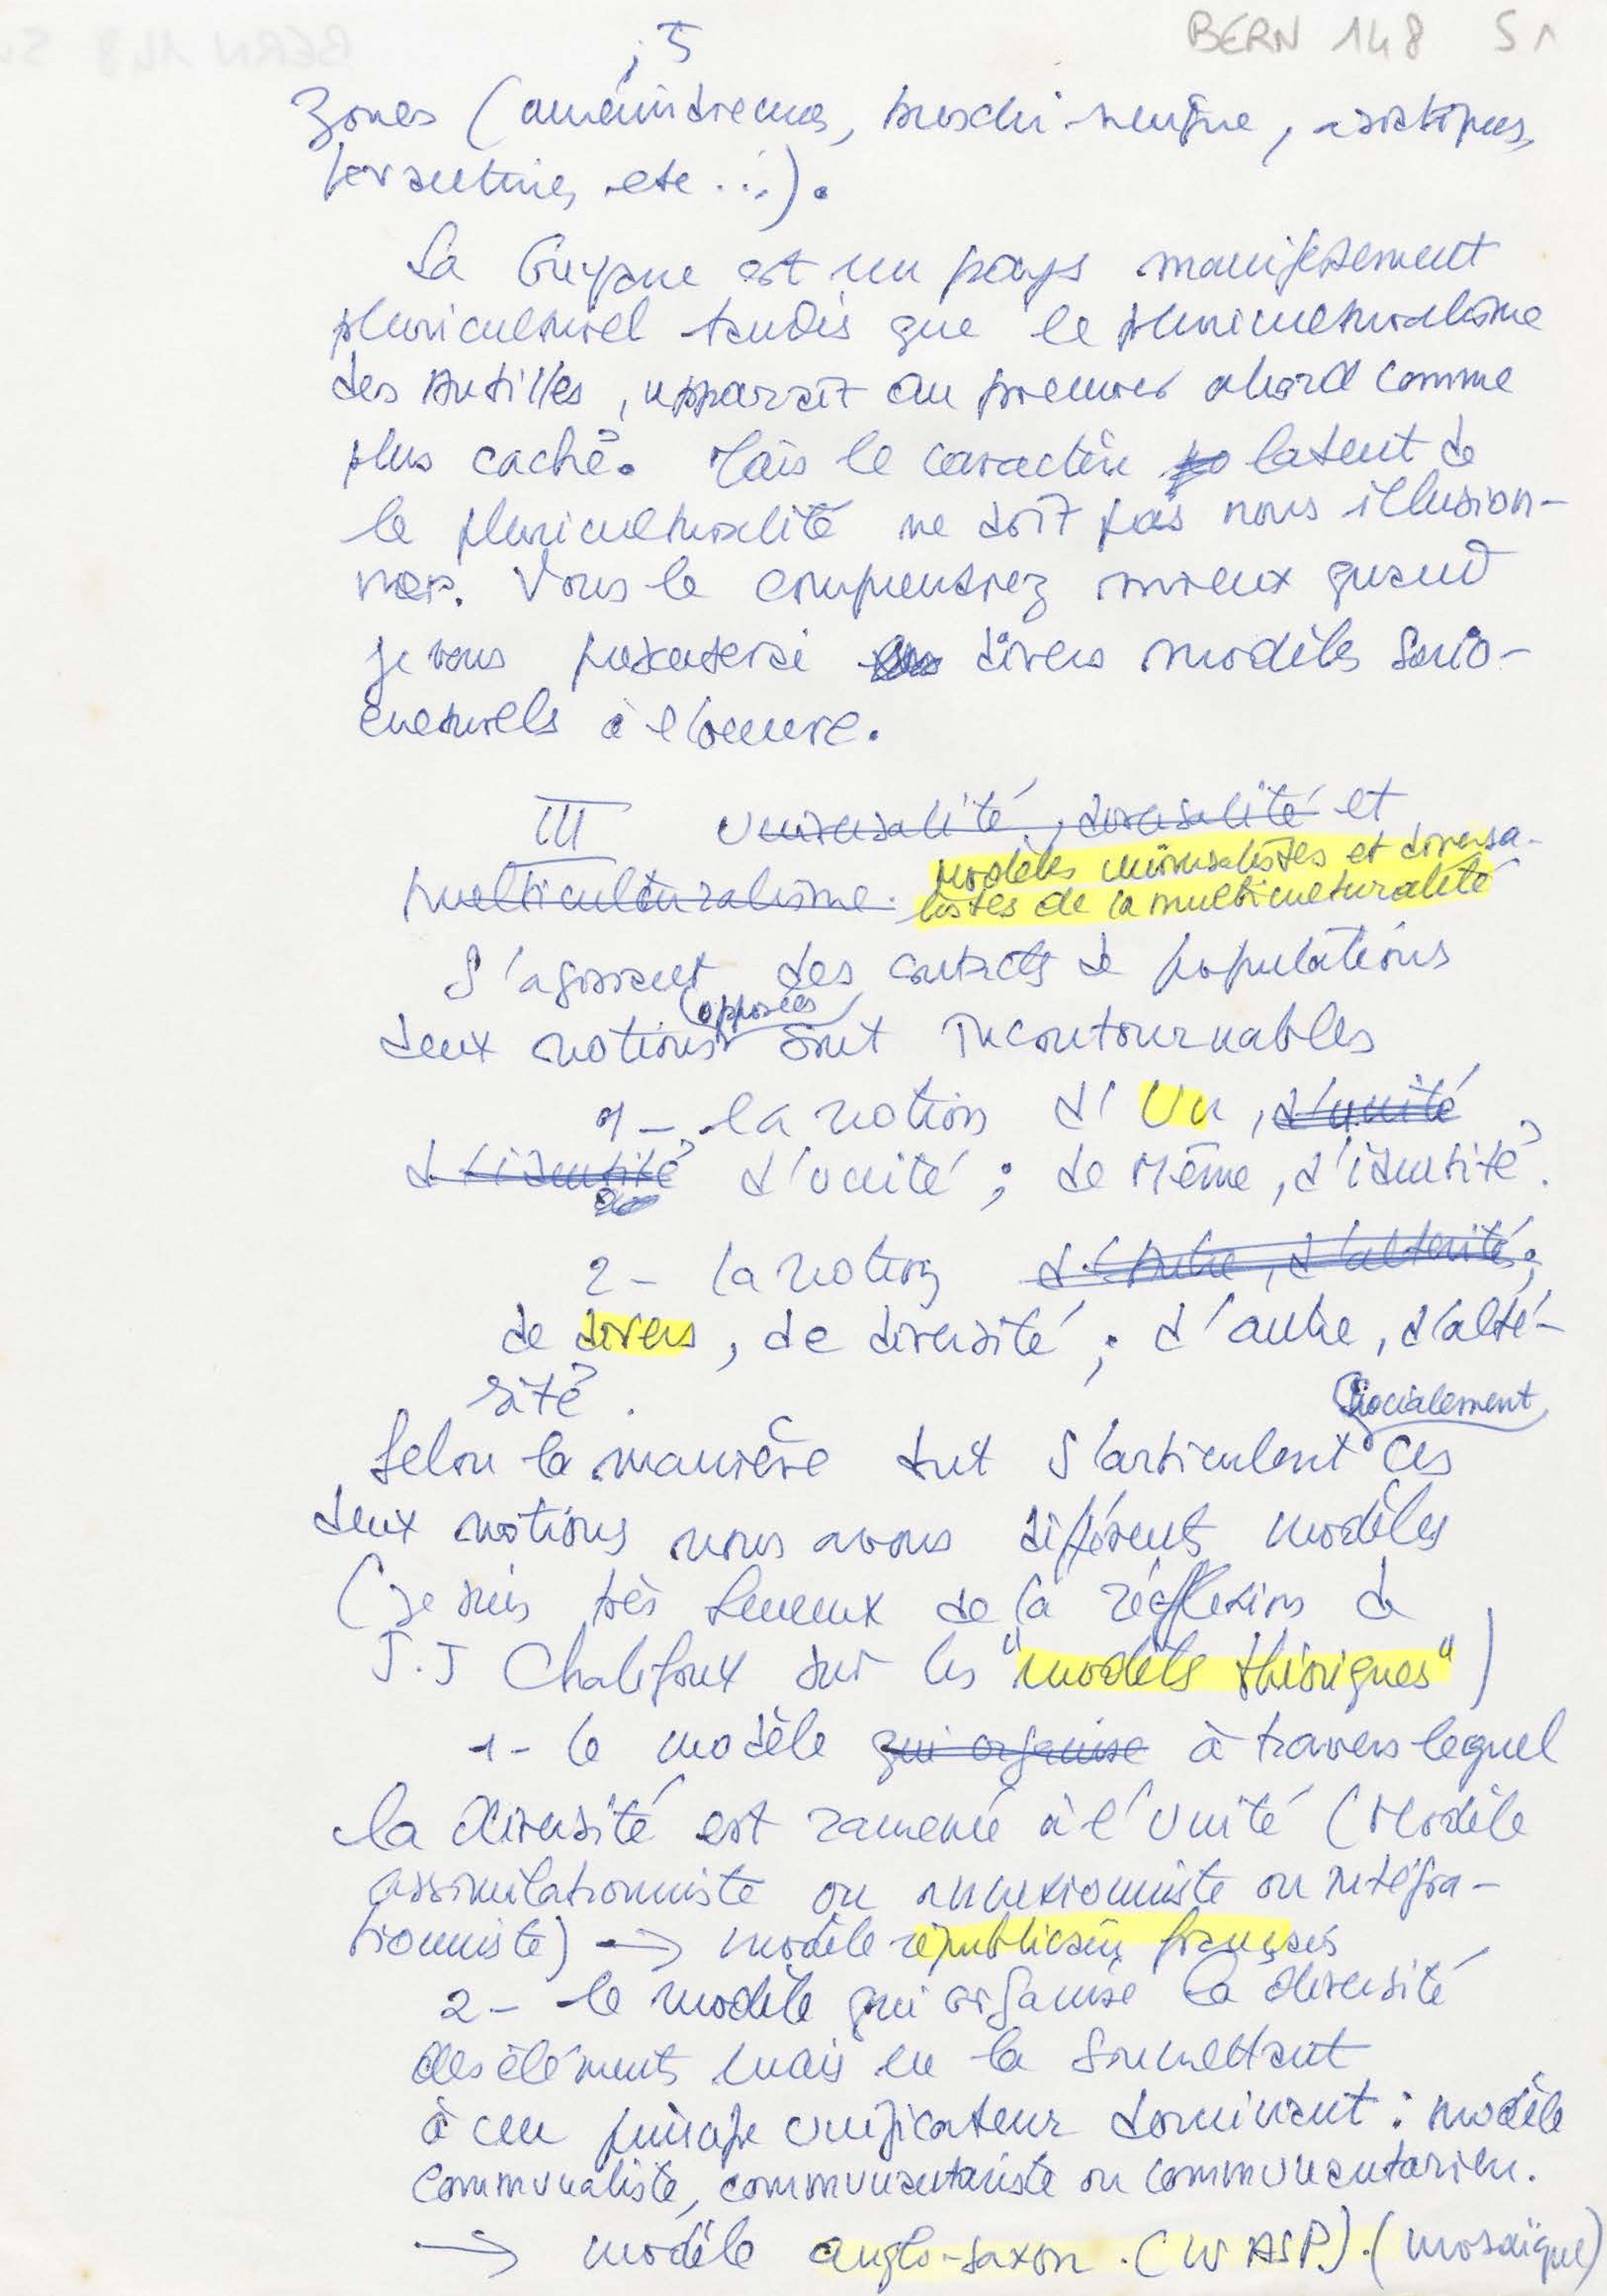 5
BERN 148 51
zones (amérindiennes, buschi-nenğue, asiatiques,
levantine, etc...).
La Guyane est un pays manifestement
pluriculturel tandis que le pluriculturalisme
des Antilles, apparaît au premier abord comme
plus caché. Mais le caractère latent de
la pluriculturalité ne doit pas nous illusion-
ner. Vous le comprendrez mieux quand
je vous présenterai divers modèles socio-
culturels à l'oeuvre.
III Universalité, diversalité et
multiculturalisme. modèles universalistes et diversa-
listes de la multiculturalité
S'agissant des contacts de populations
deux notions (opposées) sont incontournables
1 - la notion d'Un, d'unité
d'identité d'unité ; de Même, d'identité.
2 - la notion d'Autre, d'altérité ;
de divers, de diversité ; d'autre, d'alté-
rité.
Selon la manière dont s'articulent (socialement) ces
deux notions nous avons différents modèles
(je suis très heureux de la réflexion de
J.J Chalifoux sur les "modèles théoriques")
1 - le modèle qui organise à travers lequel
la diversité est ramenée à l'Unité (Modèle
assimilationniste ou annexionniste ou intégra-
tionniste) → modèle républicain français
2 - le modèle qui organise la diversité
des élément mais en la soumettant
à un principe unificateur dominant : modèle
communaliste, communautariste ou communautarien.
→ modèle anglo-saxon. (WASP). (mosaïque)